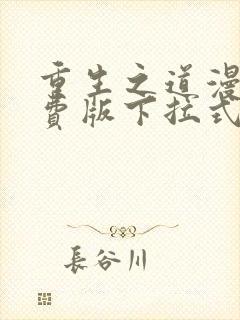 重生之道漫
费版下拉式
長谷川